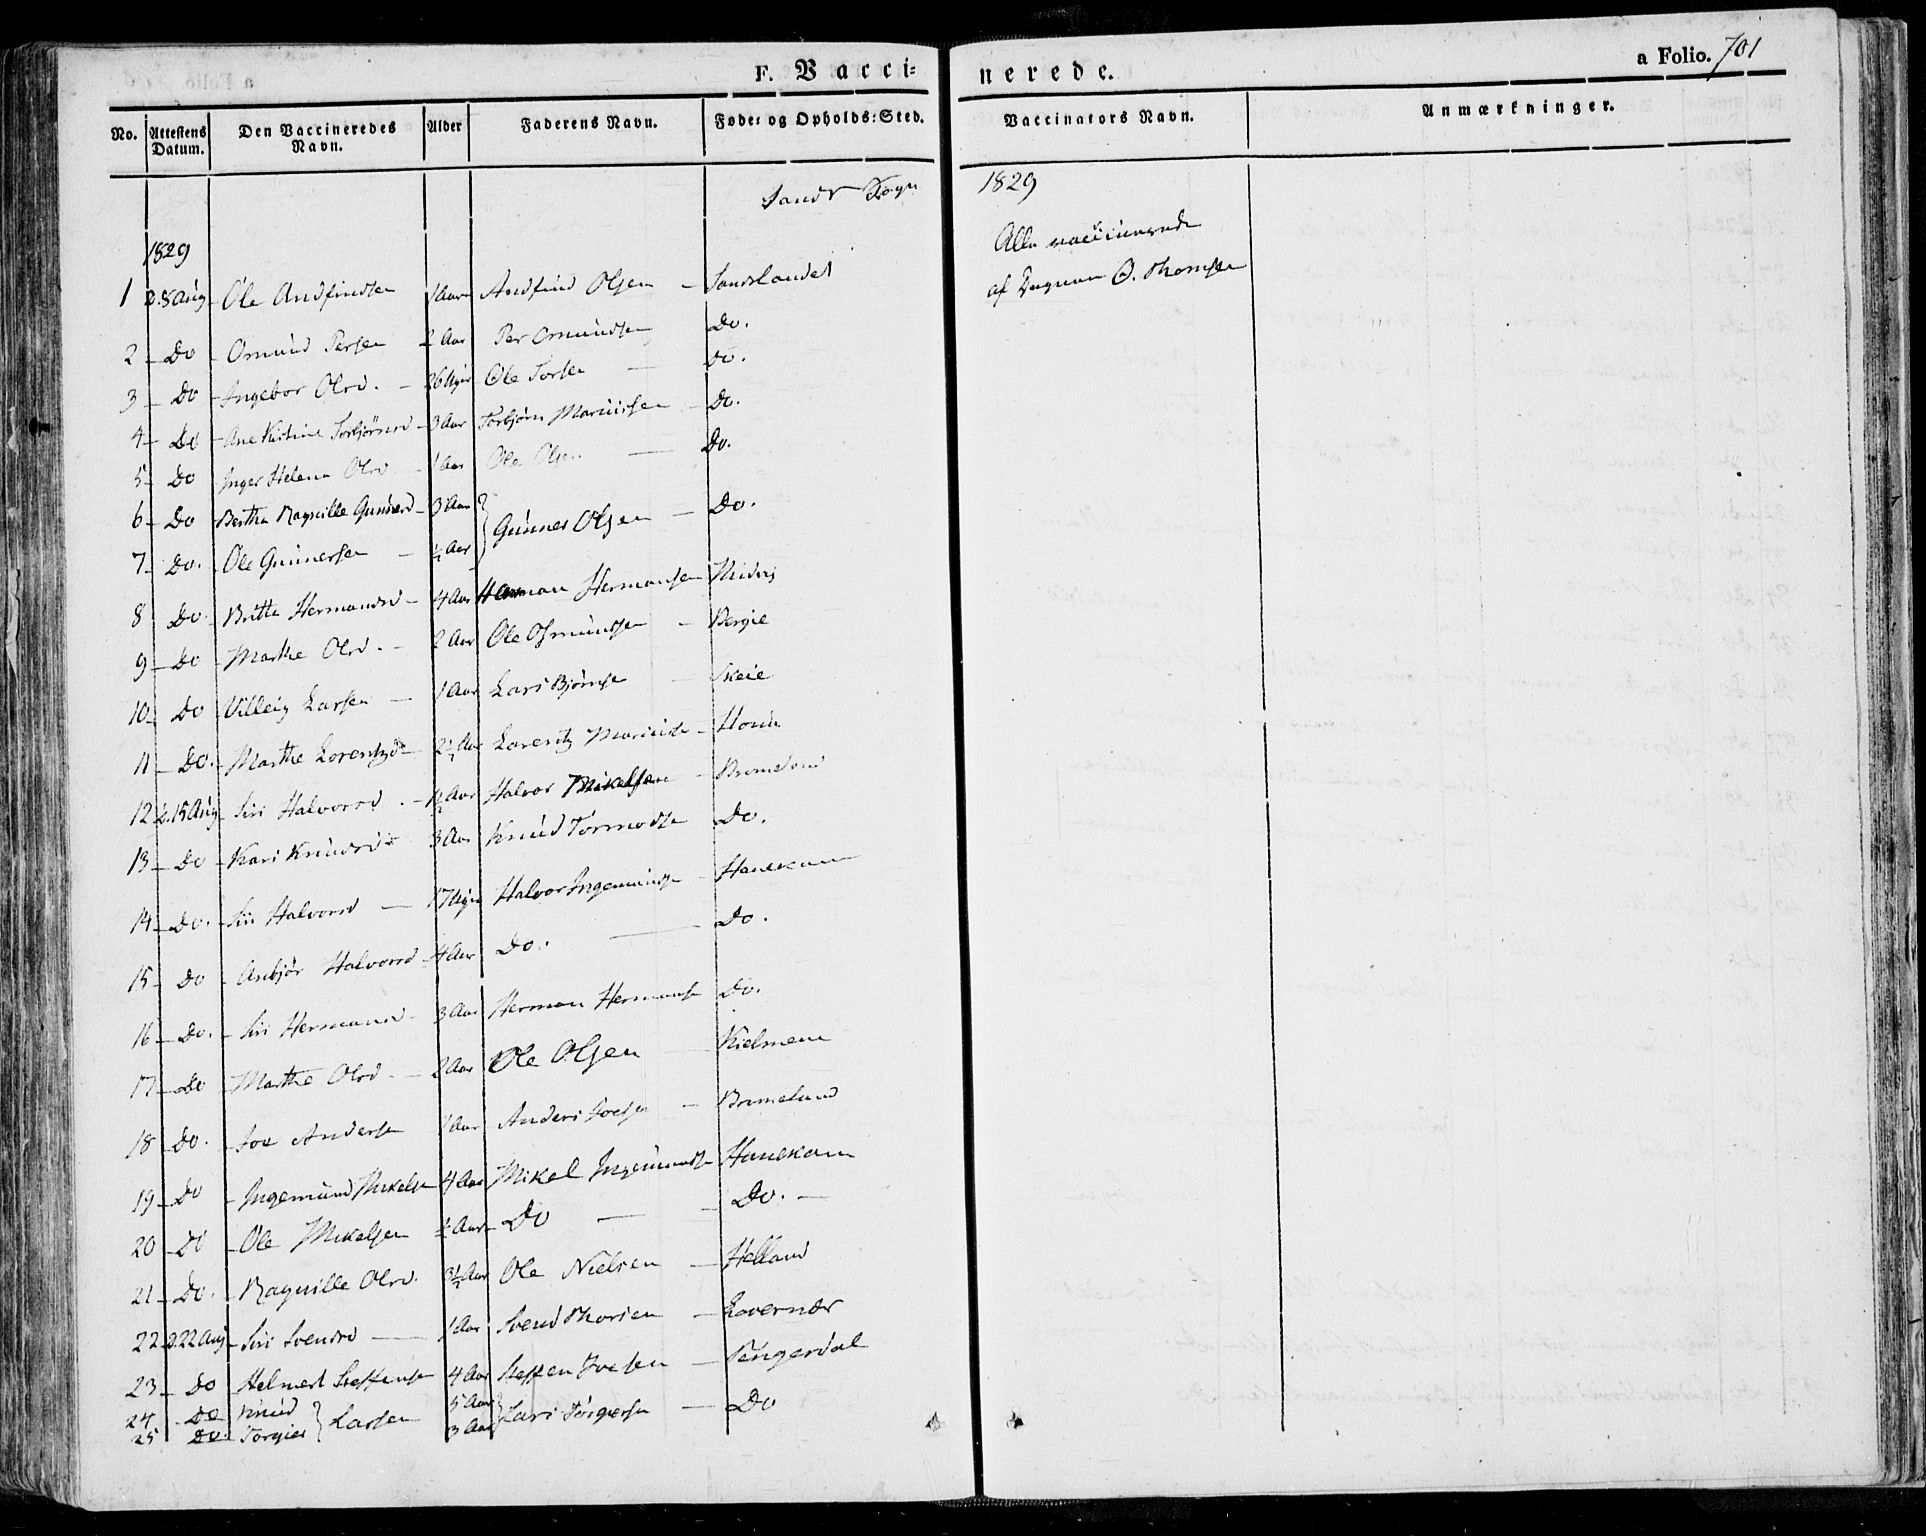 F. Vacci=
nerede.
a Folio. 701
No. Attestens Datum. Den Vaccineredes Navn. Alder Faderens Navn. Føde= og Opholds=Sted. Vaccinators Navn. Anmærkninger.
Sands Sogn
1829
1829
Alle vaccinerede
af
1 d. 8 Aug Ole Andfindsen 1 Aar Andfind Olsen Sandslandet
2 Do Omund Persen 2 Aar Per Omundsen Do.
3 Do Ingebor Olsd. 26 Uger Ole Torsen Do.
4 Do Ane Kistine Torbjörnsd 3 Aar Torbjörn Mariussen Do.
5 Do Inger Helena Olsd 1 Aar Ole Olsen Do.
6 Do Bertha Ragnille Gunnersd 3 Aar
Gunner Olsen Do.
7 Do. Ole Gunnersen ½ Aar
8 Do Britte Hermansd 4 Aar Herman Hermansen
9 Do Marthe Olsd. 2 Aar Ole Osmundsen Bergie
10 Do Villeig Larsen 1 Aar Lars Bjørnsen Skeie
11 Do. Marthe Lorentzd 2½ Aar Lorentz
12 d. 15 Aug Siri Halvorsd. 1½ Aar Halvor Mikelsen Bromeland
13 Do Kari Knudsd 3 Aar Knud Tormodse Do.
14 Do. Siri Halvorsd 17 Uger Halvor Ingemundse Hanekam
15 Do Anbjør Halvorsd 4 Aar Do. Do.
16 Do. Siri Hermansd 3 Aar Herman Hermanse Do.
17 Do Marthe Olsd. 2 Aar Ole Olsen Kielmene
18 Do. Soe Andersen 1 Aar Anders Soesen Bromeland
19 Do Ingemund Mikelse 4 Aar Mikel Ingemundse Hanekam
20 Do Ole Mikelsen ½ Aar Do Do.
21 Do. Ragnille Olsd. 3½ Aar Ole Nielsen Helland
22 d. 22 Aug Siri Svensd 1 Aar Svend Thorsen Lovernær
23 Do Helmert Steffense 4 Aar Steffen Tengesdal
24 Do Knud 5 Aar
Larsen Lars Torgerse Do
25 Do. Torgier 3 Aar